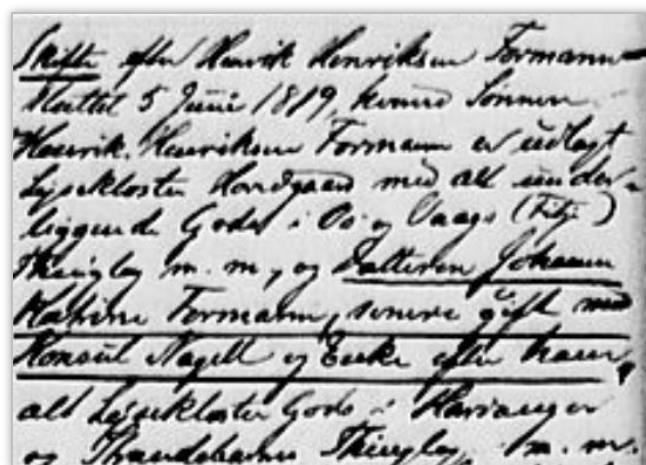 Skifte efter Henrik Henriksen Formann
sluttet 5 Juni 1819, hvorved Sønnen
Henrik Henriksen Formann er udlagt
Lysekloster Hovedgaard med alt under-
liggende Gods i Os og Vaags (Fitje)
Thinglag m. m., og Datteren Johanne
Katrine Formann, senere gift med
Konsul Nagell og Enke efter ham,
alt Lysekloster Gods i Hardanger
og Strandebarms Thinglag m. m.